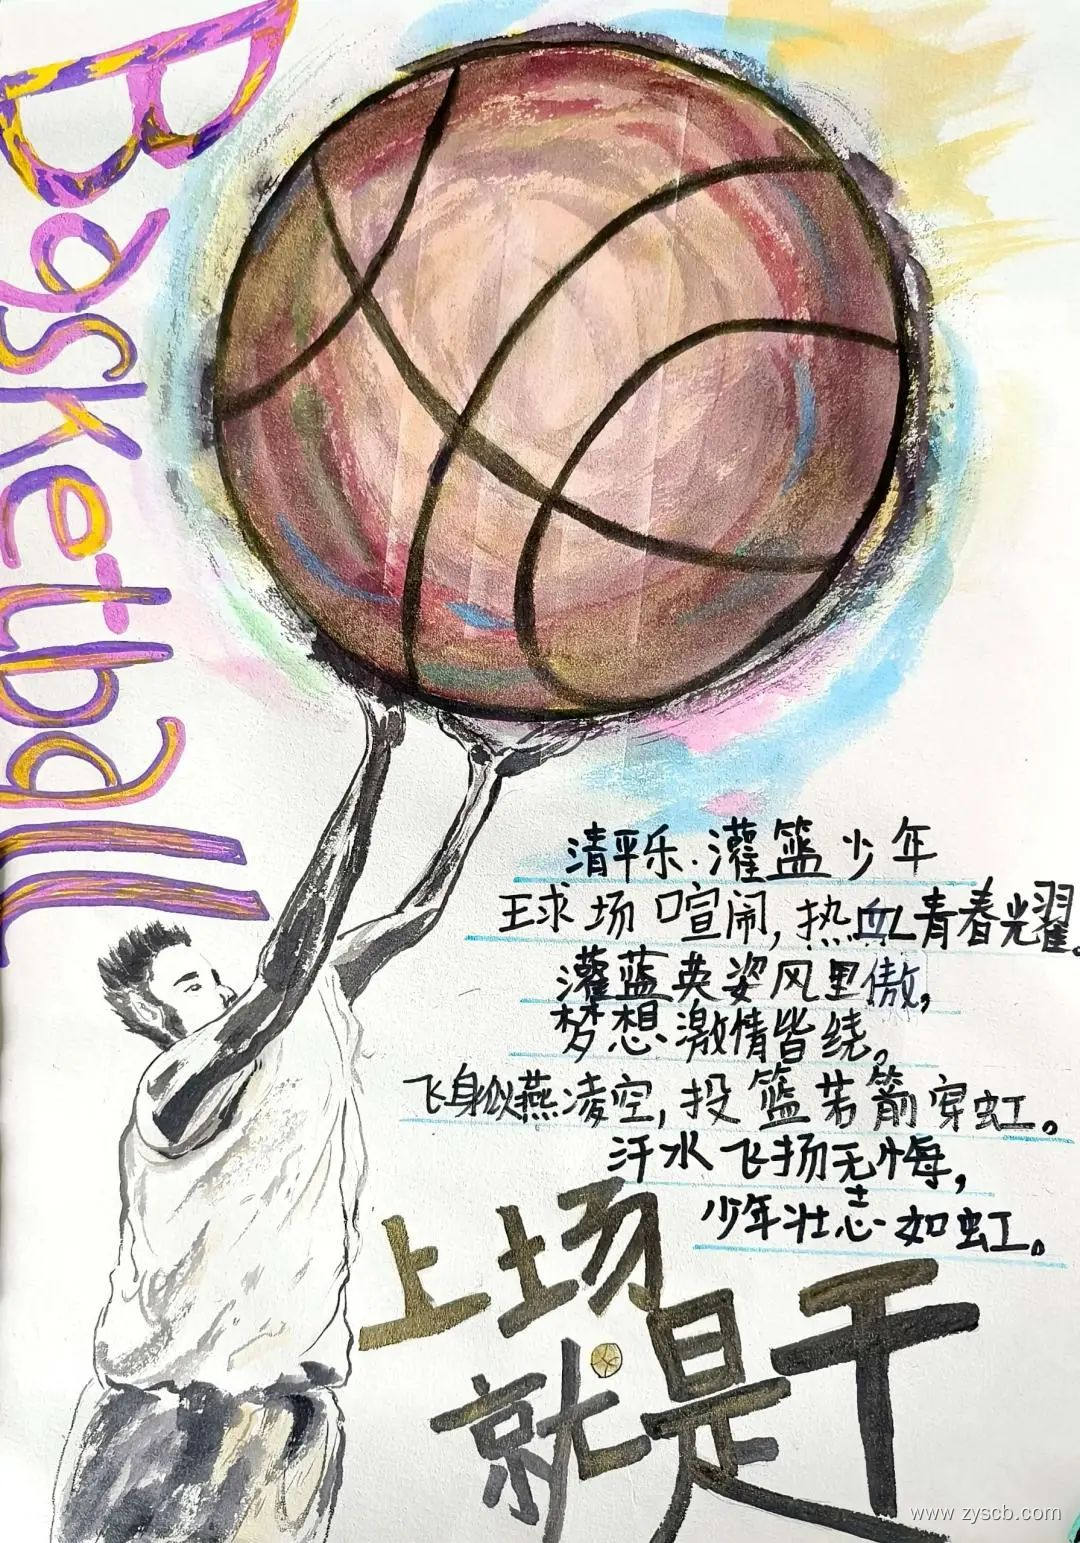 Basketball
清平乐·灌篮少年
球场喧闹,热血青春光耀。
灌蓝英姿风里傲,
梦想激情皆绕。
飞身似燕凌空,投篮若箭穿虹。
汗水飞扬无悔,
少年壮志如虹。
上场
就是干
www.zyscb.com